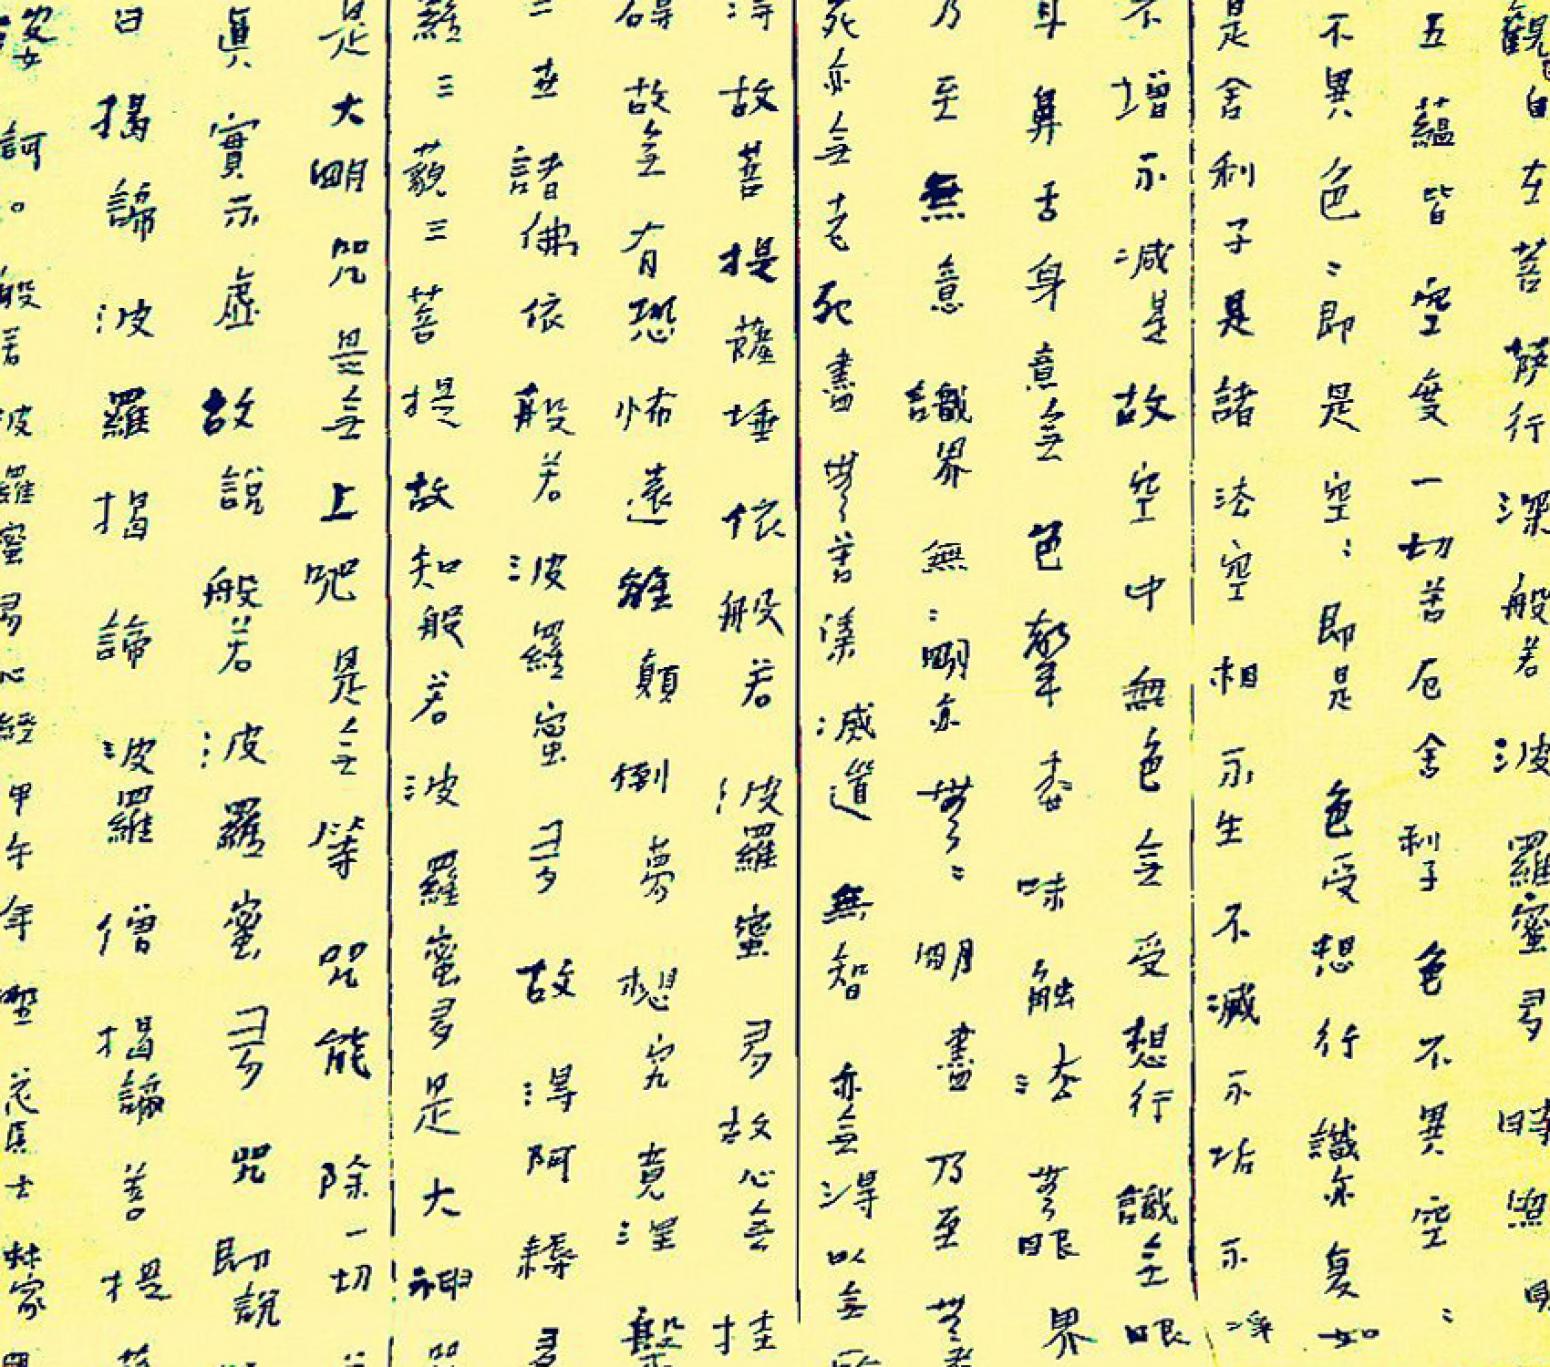 觀自在菩薩行深般若波羅蜜多時照見
五蘊皆空度一切苦厄舍利子色不異空〻
不異色〻即是空〻即是色受想行識亦復如
是舍利子是諸法空相不生不滅不垢不淨
不增不減是故空中無色無受想行識無眼
耳鼻舌身意無色聲香味觸法無眼界
乃至無意識界無〻明亦無〻明盡乃至無老
死亦無老死盡無苦集滅道無智亦無得以無所
得故菩提薩埵依般若波羅蜜多故心無挂
礙故無有恐怖遠離顛倒夢想究竟涅槃
三世諸佛依般若波羅蜜多故得阿耨多
羅三藐三菩提故知般若波羅蜜多是大神咒
是大明咒是無上咒是無等咒能除一切
真實不虛故說般若波羅蜜多咒即說
曰揭諦波羅揭諦波羅僧揭諦菩提
婆訶。般若波羅蜜多心經甲午年 居士林家